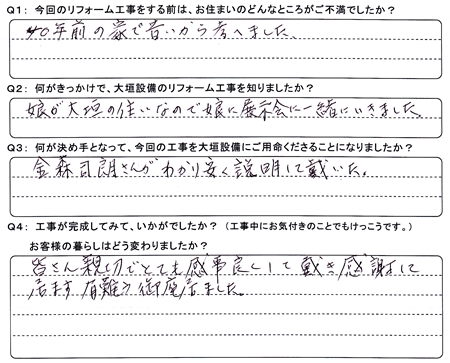 Q1: 今回のリフォーム工事をする前は、お住まいのどんなところがご不満でしたか?
40年前の家で昔いから考へました。
Q2: 何がきっかけで、大垣設備のリフォーム工事を知りましたか?
娘が大垣の住いなので娘に展示会に一緒にいきました。
Q3: 何が決め手となって、今回の工事を大垣設備にご用命くださることになりましたか?
金森司朗さんがわかり安く説明して戴いた。
Q4: 工事が完成してみて、いかがでしたか? (工事中にお気付きのことでもけっこうです。)
お客様の暮らしはどう変わりましたか?
皆さん親切でとても感事良くして戴き感謝して
居ます 有難う御座居ました。